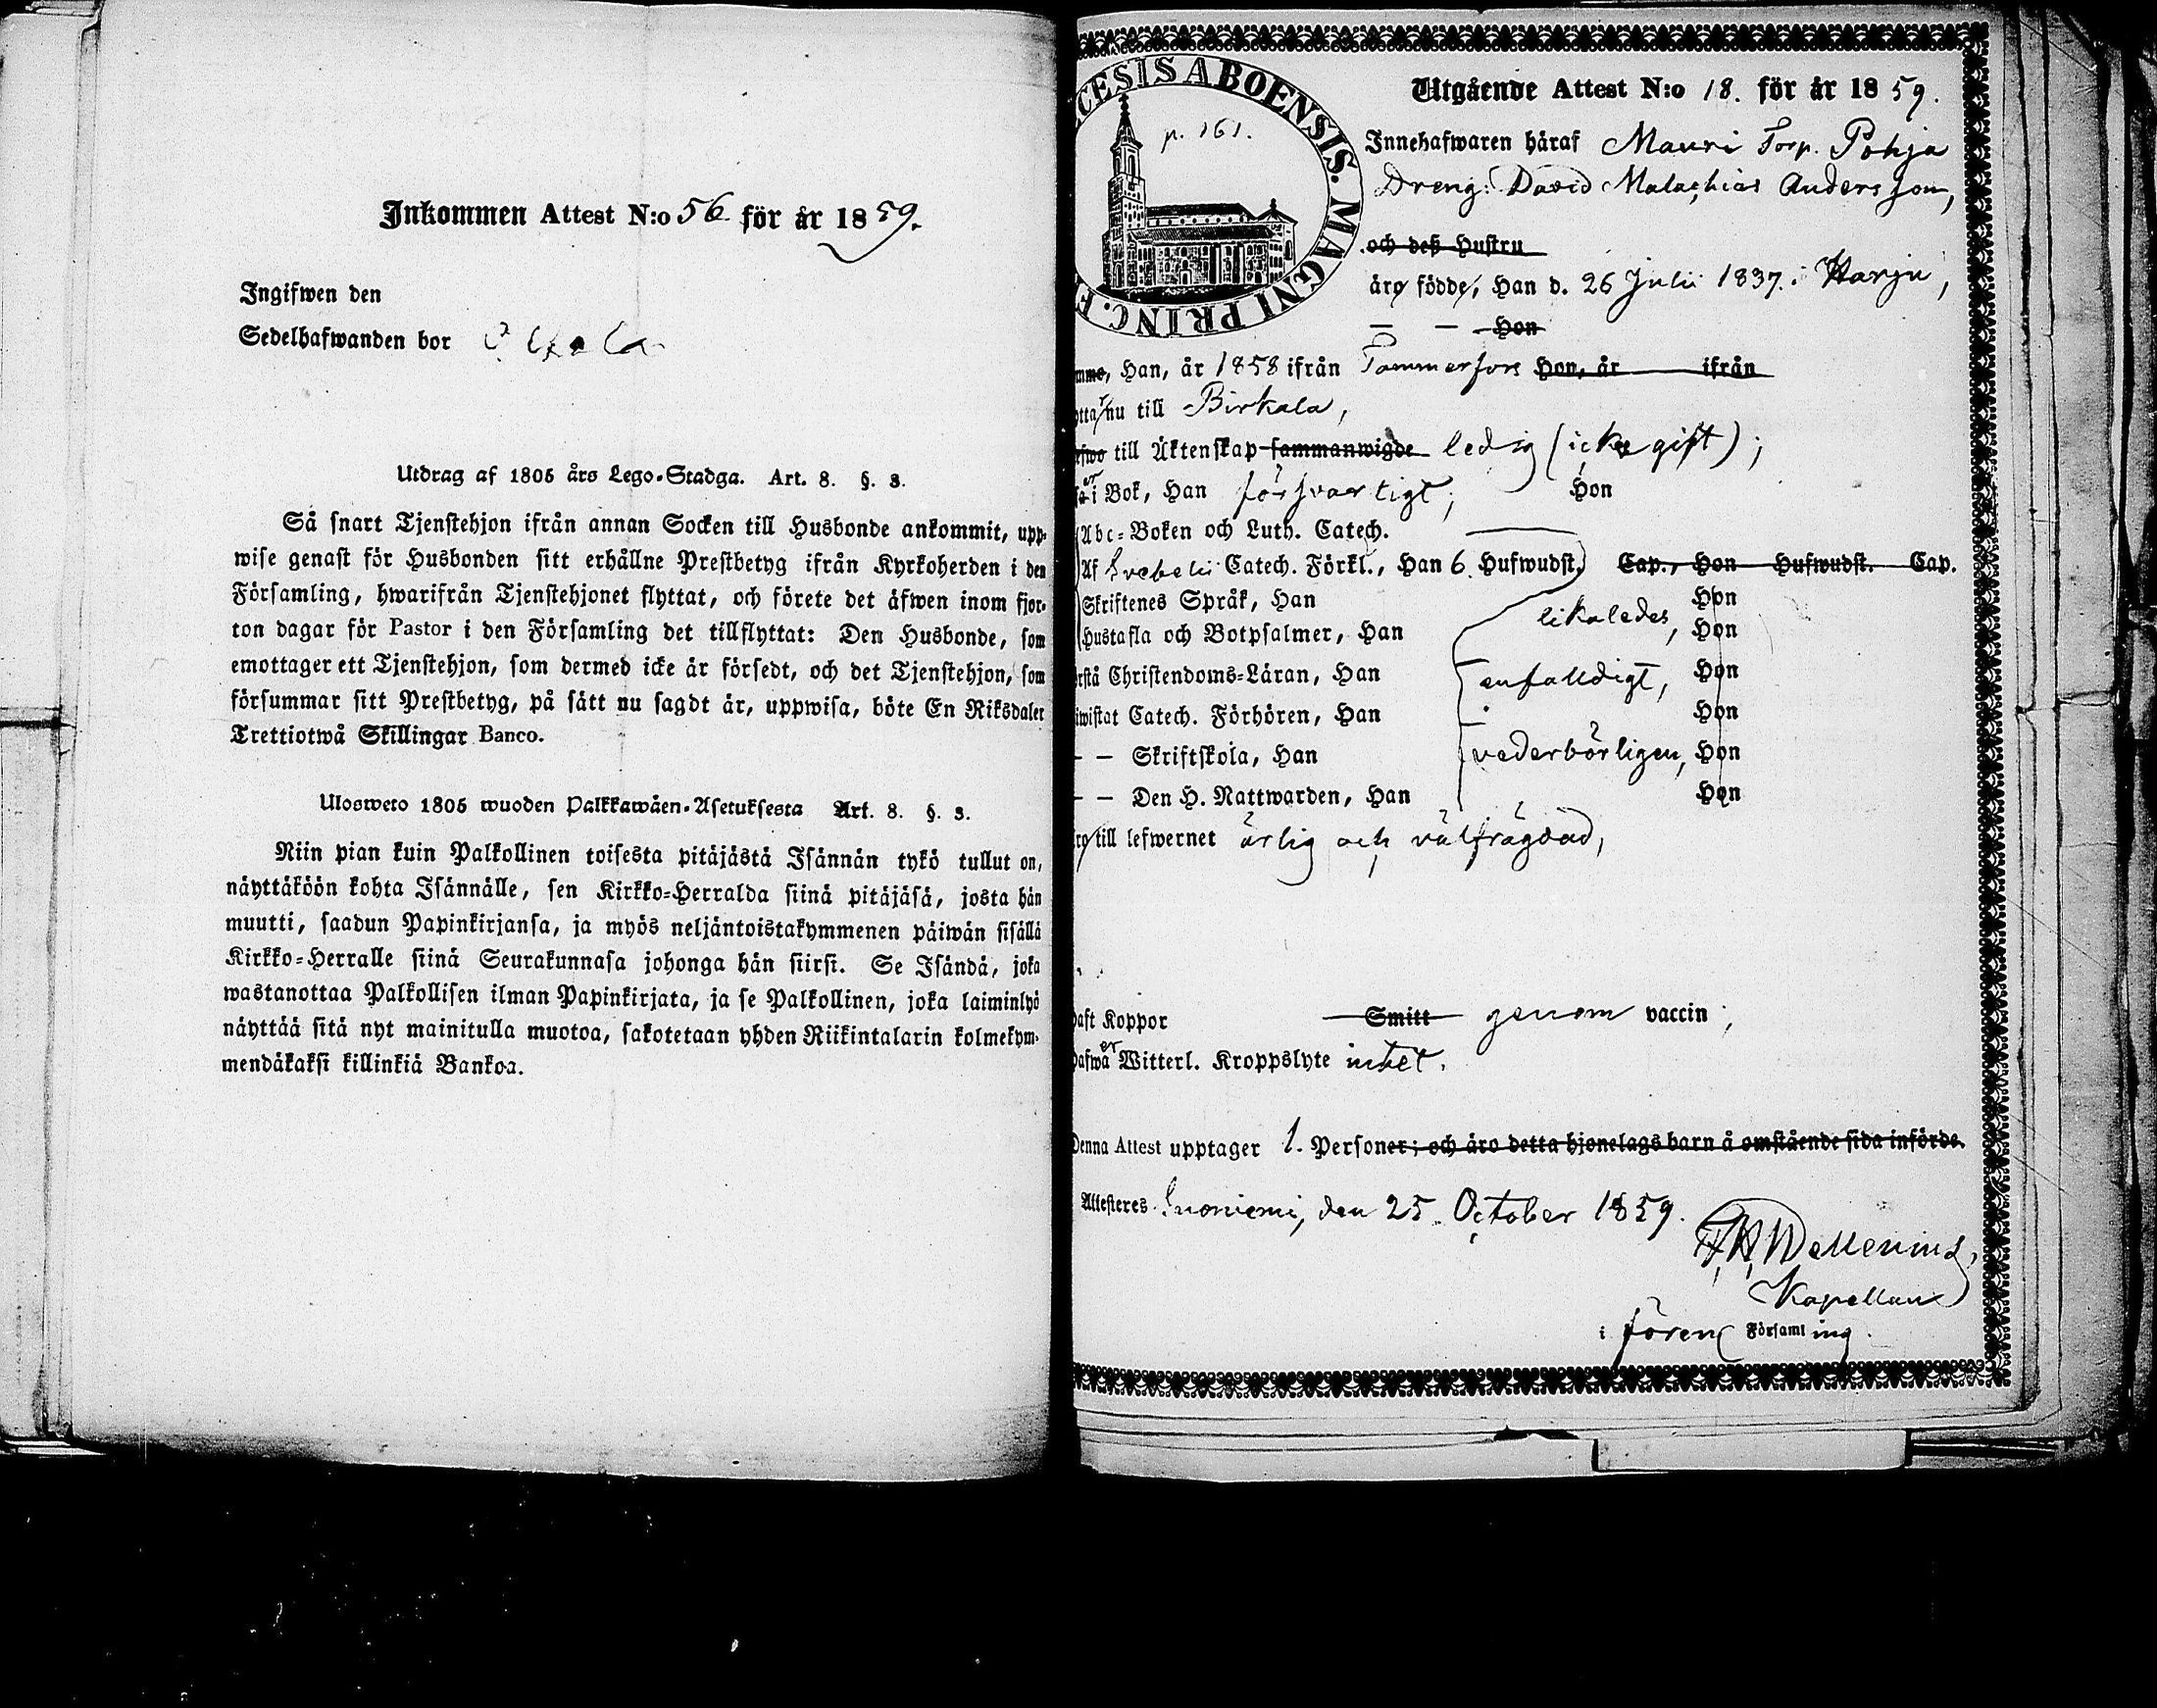 Inkommen Attest N:o 56 för år 1859.
Ingifwen den
Sedelhafwanden bor
Utdrag af 1805 års Lego-Stadga. Art. 8. §. 3.
Så snart Tjenstehjon ifrån annan Socken till Husbonde ankommit, upp-
wise genast för Husbonden sitt erhållne Prestbetyg ifrån Kyrkoherden i den
Församling, hwarifrån Tjenstehjonet flyttat, och förete det äfwen inom fjor-
ton dagar för Pastor i den Församling det tillflyttat: Den Husbonde, som
emottager ett Tjenstehjon, som dermed icke är försedt, och det Tjenstehjon, som
försummar sitt Prestbetyg, på sätt nu sagdt är, uppwisa, böte En Riksdaler
Trettiotwå Skillingar Banco.
Ulosweto 1805 wuoden Palkkawäen-Asetuksesta Art. 8. §. 3.
Niin pian kuin Palkollinen toisesta pitäjästä Isännän tykö tullut on,
näyttäköön kohta Isännälle, sen Kirkko-Herralda siinä pitäjäsä, josta hän
muutti, saadun Papinkirjansa, ja myös neljäntoistakymmenen päiwän sisällä
Kirkko-Herralle siinä Seurakunnasa johonga hän siirsi. Se Isändä, joka
wastanottaa Palkollisen ilman Papinkirjata, ja se Palkollinen, joka laiminlyö
näyttää sitä nyt mainitulla muotoa, sakotetaan yhden Riikintalarin kolmekym-
mendäkaksi killinkiä Bankoa.
CESIS ABOENSIS. MAGNI PRINC. F
p. 161.
Utgående Attest N:o 18. för år 1859.
Innehafwaren häraf Mauri Torp. Pohja
Dreng: David Malachias Andersson,
och deß Hustru
äro födde, Han d. 26 Julii 1837. i Harju,
— — Hon
mme, Han, år 1858 ifrån Tammerfors Hon, år ifrån
otta r nu till Birkala,
till Äktenskap sammanwigde ledig (icke gift);
er i Bok, Han försvarligt; Hon
Abc-Boken och Luth. Catech.
Af Svebelii Catech. Förkl., Han 6. Hufwudst. Cap., Hon Hufwudst. Cap.
Skriftenes Språk, Han Hon
likaledes,
Hustafla och Botpsalmer, Han Hon
rstå Christendoms-Läran, Han enfalldigt, Hon
iwistat Catech. Förhören, Han Hon
— — Skriftskola, Han vederbörligen, Hon
— — Den H. Nattwarden, Han Hon
till lefwernet ärlig och välfrägdad,
haft Koppor Smitt genom vaccin;
hafwa er Witterl. Kroppslyte intet.
Denna Attest upptager 1. Personer; och äro detta hjonelags barn å omstående sida införde.
Attesteres Suoniemi, den 25. October 1859.
Kapellan
i fören Församling.